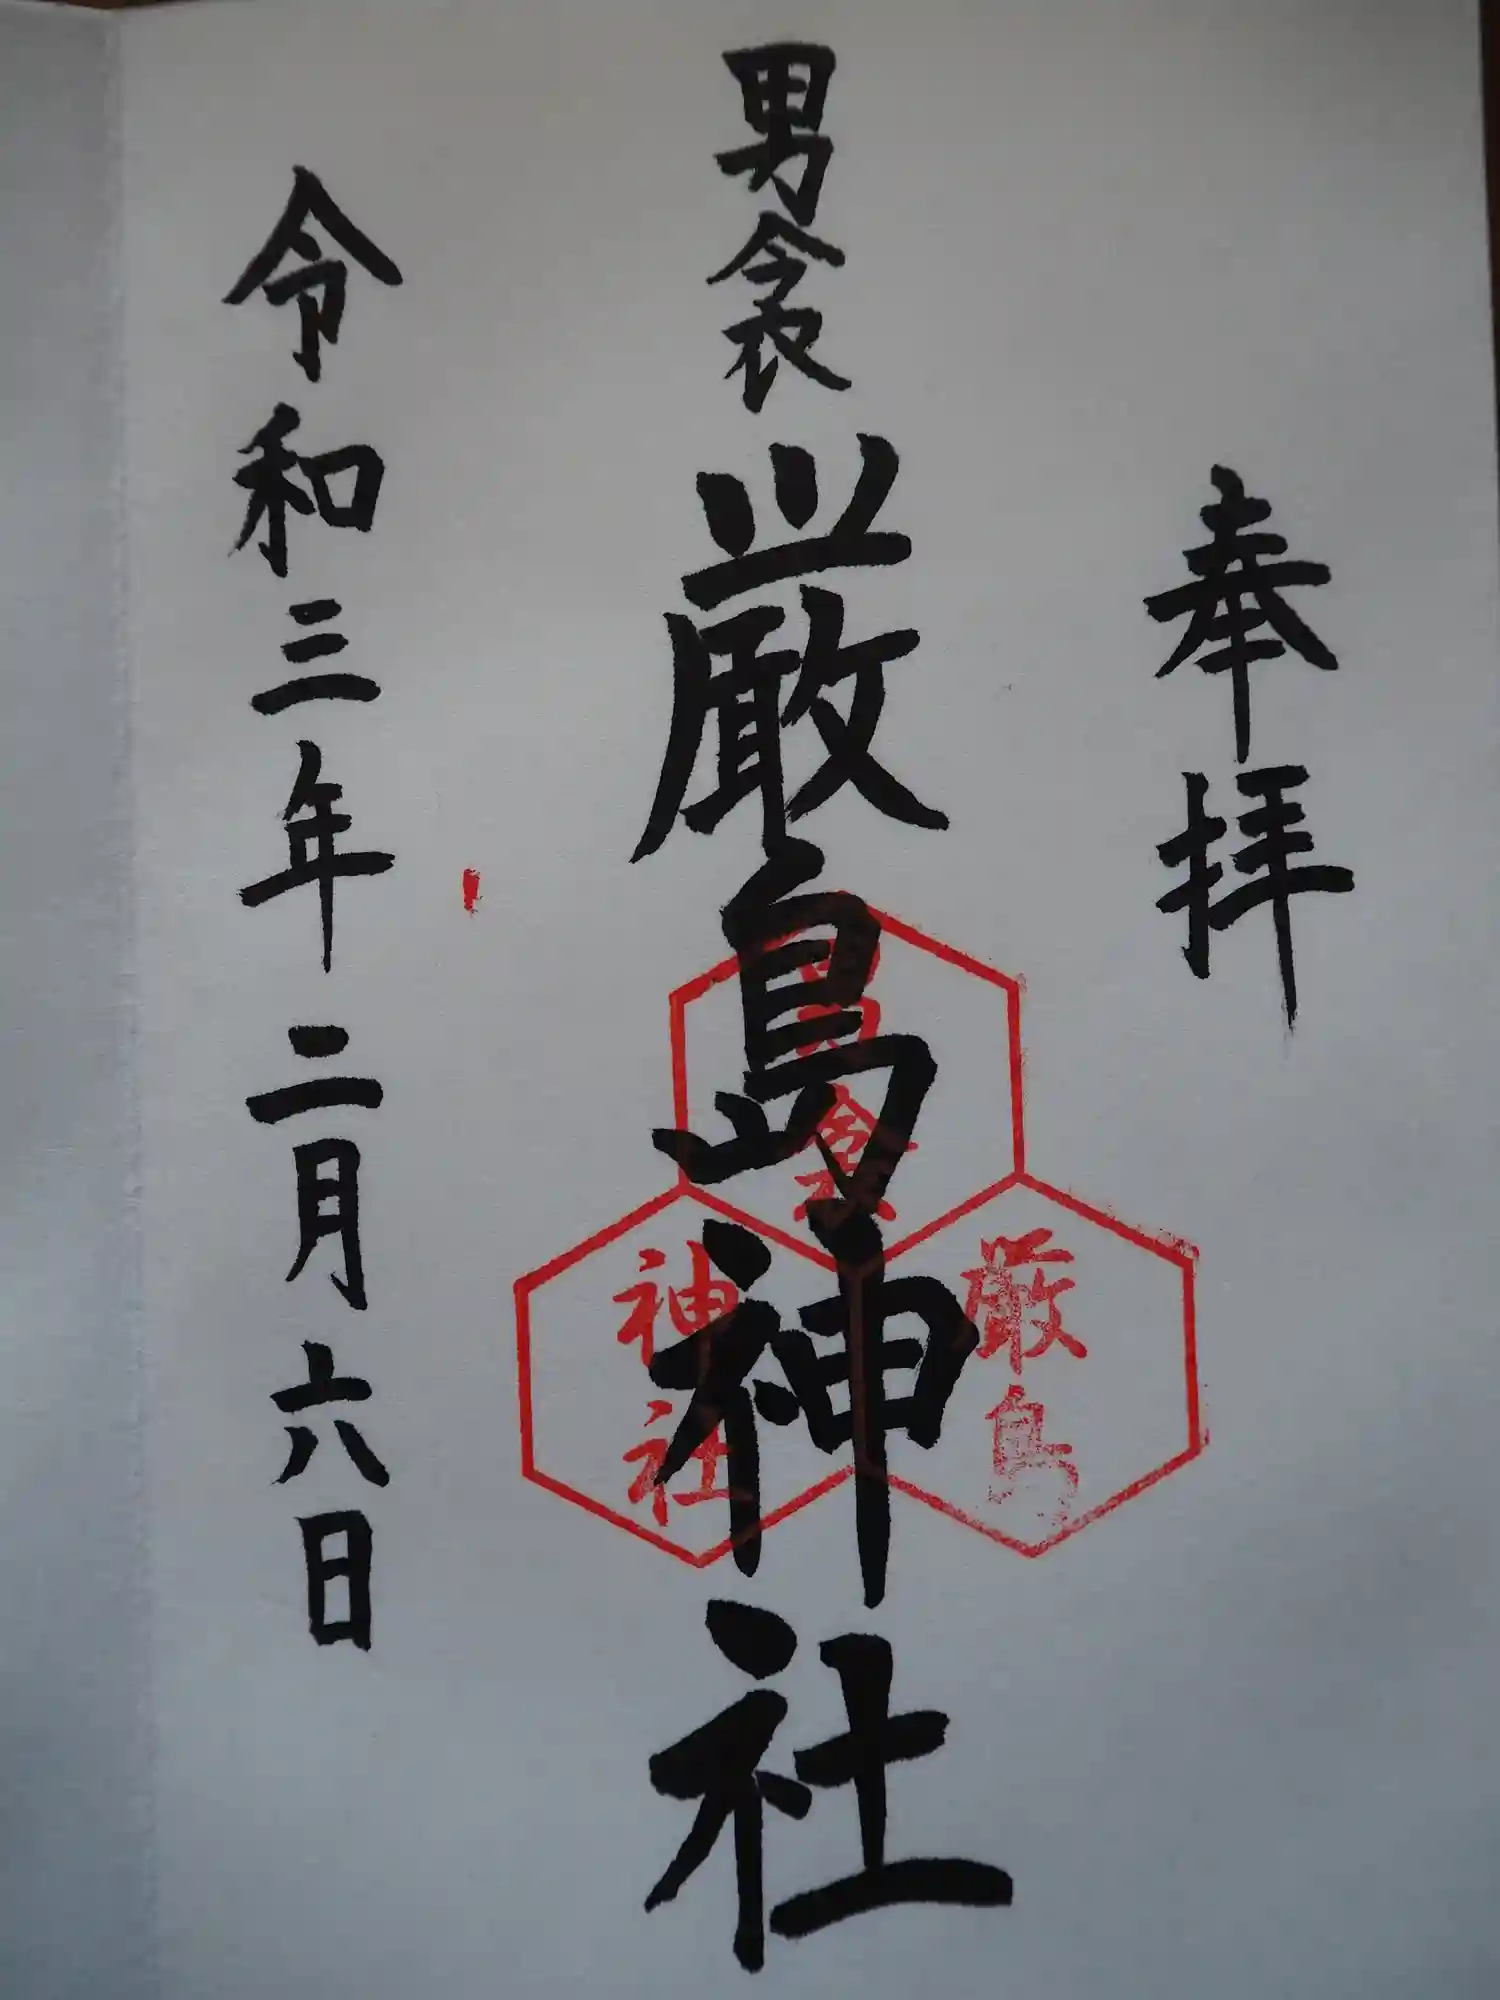 奉拝
男衾
厳島神社
令和三年二月六日
男衾
厳島
神社